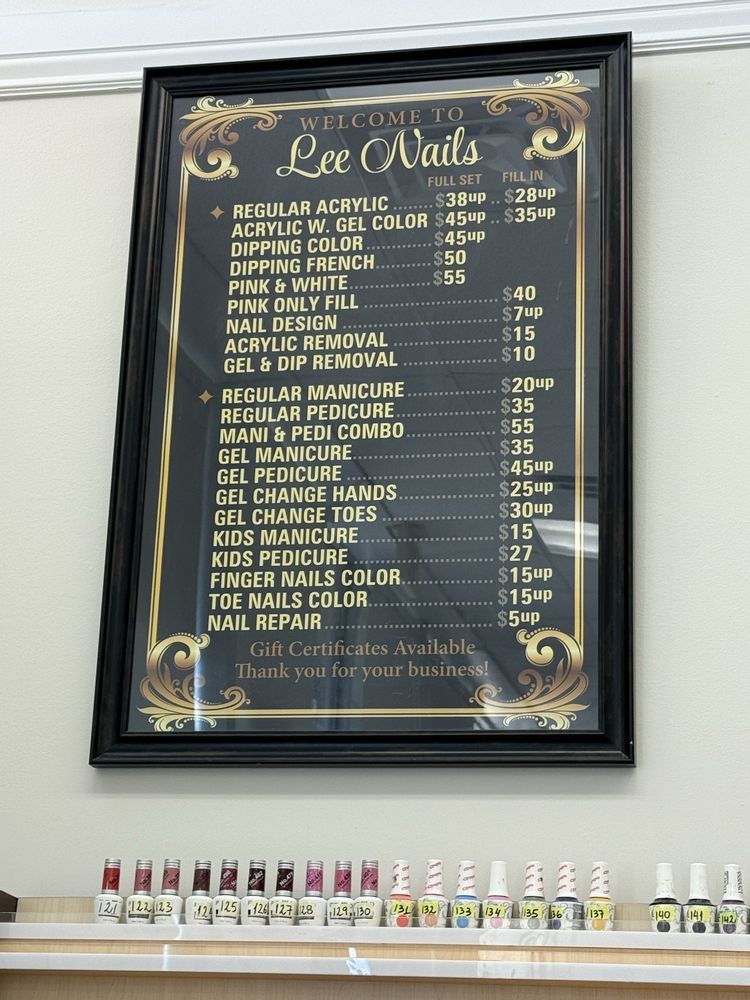 WELCOME TO
Lee Nails
FULL SET FILL IN
REGULAR ACRYLIC $38up $28up
ACRYLIC W. GEL COLOR $45up $35up
DIPPING COLOR $45up
DIPPING FRENCH $50
PINK & WHITE $55
PINK ONLY FILL $40
NAIL DESIGN $7up
ACRYLIC REMOVAL $15
GEL & DIP REMOVAL $10
REGULAR MANICURE $20up
REGULAR PEDICURE $35
MANI & PEDI COMBO $55
GEL MANICURE $35
GEL PEDICURE $45up
GEL CHANGE HANDS $25up
GEL CHANGE TOES $30up
KIDS MANICURE $15
KIDS PEDICURE $27
FINGER NAILS COLOR $15up
TOE NAILS COLOR $15up
NAIL REPAIR $5up
Gift Certificates Available
Thank you for your business!
121 122 123 125 126 127 128 129 130 131 132 133 134 135 136 137 140 141 142